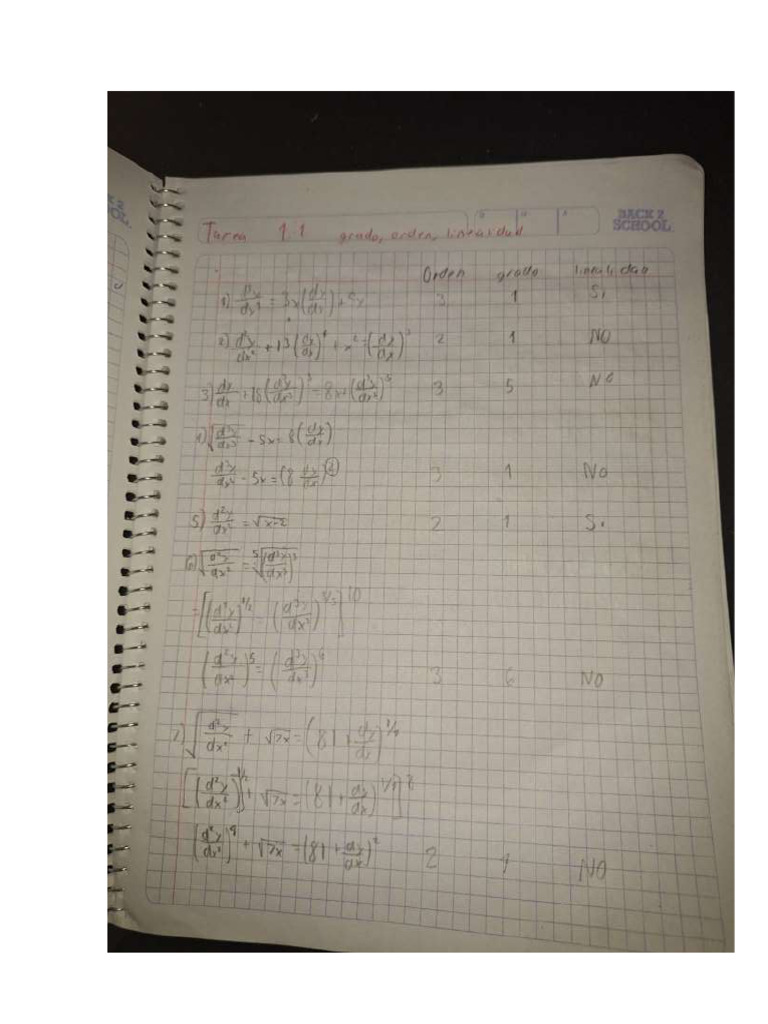 BACK 2
SCHOOL
Tarea 1.1 grado, orden, linealidad
Orden grado linealidad
1) = 3x(dy/dx) + 3 1 Si
2) d²y/dx² + 13(dy/dx)⁴ + x² = (dy/dx)³ 2 1 NO
3) dy/dx + 18(d³y/dx³)³ = 8x + (d³y/dx³)⁵ 3 5 No
4) √(d³y/dx³) - 5x = 8(dy/dx)
- 5x = (8 dy/dx)② 3 1 No
5) d²y/dx² = √x-2 2 1 Si
6) √(d²y/dx²) = ⁵√(d³y/dx³)³
(d²y/dx²)^1/2
(d²y/dx²)⁵ = (d³y/dx³)⁶ 3 6 No
7) √(d²y/dx²) + √7x = (81 + dy/dx)^1/4
[(d²y/dx²)^1/2 + √7x = (81 + dy/dx)^1/4]⁸
(d²y/dx²)⁴ + √7x = (81 + dy/dx)² 2 4 NO